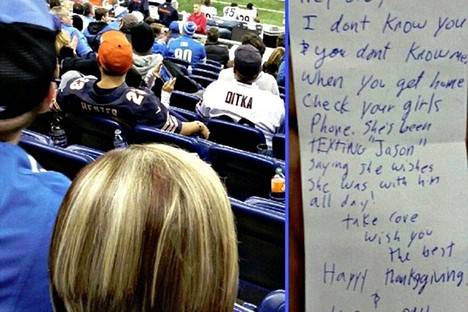 90
HESTER
23
DITKA
I dont know you
& you dont know me,
when you get home
Check your girls
Phone. She's been
tEXTING "Jason"
saying she wishes
she was with him
all day!
take care
wish you
the best
Happy thanksgiving
&